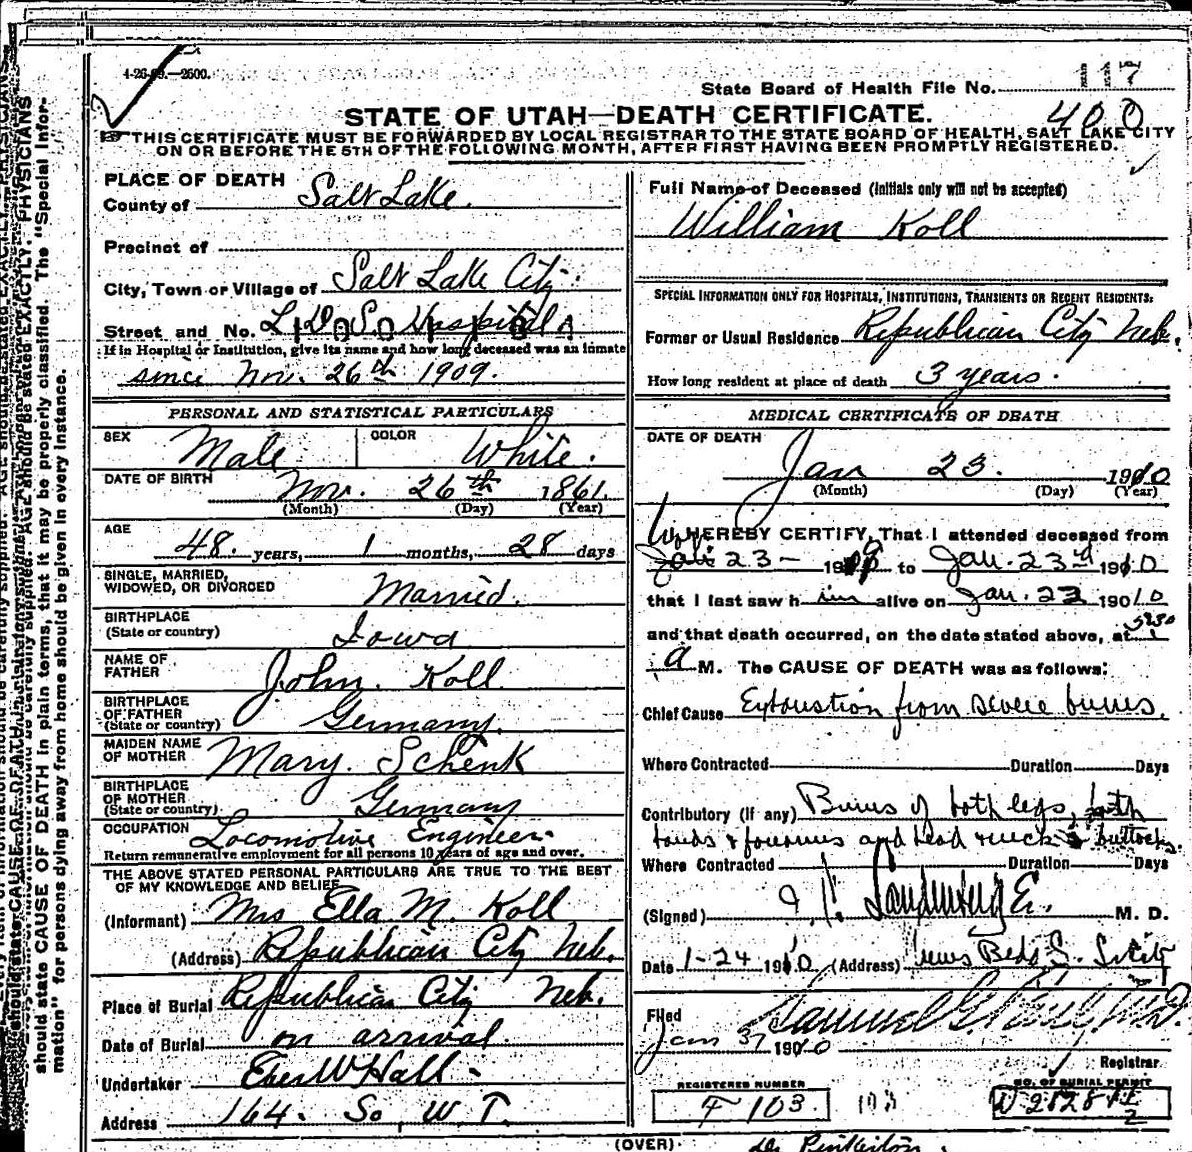 4-26-09.—2500.
State Board of Health File No. 117
400
STATE OF UTAH—DEATH CERTIFICATE.
THIS CERTIFICATE MUST BE FORWARDED BY LOCAL REGISTRAR TO THE STATE BOARD OF HEALTH, SALT LAKE CITY
ON OR BEFORE THE 5TH OF THE FOLLOWING MONTH, AFTER FIRST HAVING BEEN PROMPTLY REGISTERED.
PLACE OF DEATH
County of Salt Lake.
Precinct of
City, Town or Village of Salt Lake City
Street and No. L.D.S. Hospital
If in Hospital or Institution, give its name and how long deceased was an inmate
since Nov. 26th 1909.
PERSONAL AND STATISTICAL PARTICULARS
SEX Male COLOR White.
DATE OF BIRTH Nov. 26th 1861.
(Month) (Day) (Year)
AGE 48. years, 1 months, 28 days
SINGLE, MARRIED,
WIDOWED, OR DIVORCED Married.
BIRTHPLACE
(State or country) Iowa
NAME OF
FATHER John Koll
BIRTHPLACE
OF FATHER
(State or country) Germany.
MAIDEN NAME
OF MOTHER Mary. Schenk
BIRTHPLACE
OF MOTHER
(State or country) Germany
OCCUPATION Locomotive Engineer
Return remunerative employment for all persons 10 years of age and over.
THE ABOVE STATED PERSONAL PARTICULARS ARE TRUE TO THE BEST
OF MY KNOWLEDGE AND BELIEF
(Informant) Mrs Ella M. Koll
(Address) Republican City Neb.
Place of Burial Republican City Neb.
Date of Burial on arrival
Undertaker Eber W Hall
Address 164. So. W. T.
Full Name of Deceased (Initials only will not be accepted)
William Koll
SPECIAL INFORMATION ONLY FOR HOSPITALS, INSTITUTIONS, TRANSIENTS OR RECENT RESIDENTS:
Former or Usual Residence Republican City Neb.
How long resident at place of death 3 years.
MEDICAL CERTIFICATE OF DEATH
DATE OF DEATH
Jan 23. 1910
(Month) (Day) (Year)
HEREBY CERTIFY, That I attended deceased from
23— 190 to Jan. 23rd 1910
that I last saw him alive on Jan. 23 19010
and that death occurred, on the date stated above, at 5:30
a M. The CAUSE OF DEATH was as follows:
Chief Cause Exhaustion from severe burns.
Where Contracted Duration Days
Contributory (if any) Burns of both legs, both
hands & forearms and head neck & buttocks.
Where Contracted Duration Days
(Signed) M. D.
Date 1-24 1910 (Address) News Bldg S. L. City
Filed
Jan 31 1910
Registrar
REGISTERED NUMBER
F 103.
103
NO. OF BURIAL PERMIT
(OVER)
Dr Pinkerton
should state CAUSE OF DEATH in plain terms, that it may be properly classified. The "Special Infor-
mation" for persons dying away from home should be given in every instance.